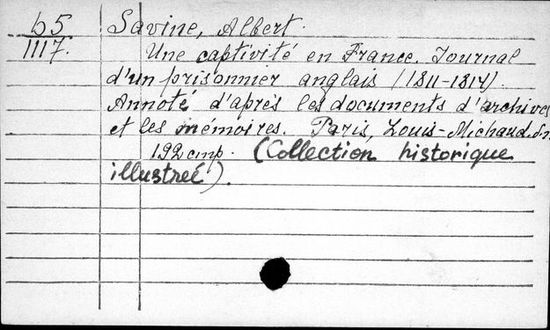 b5 Savine, Albert.
1117. Une captivité en France. Journal
d'un prisonnier anglais (1811-1814).
Annoté d'après les documents d'archives
et les mémoires. Paris, Louis-Michaud. S.
192 cmp. (Collection historique
illustreé).